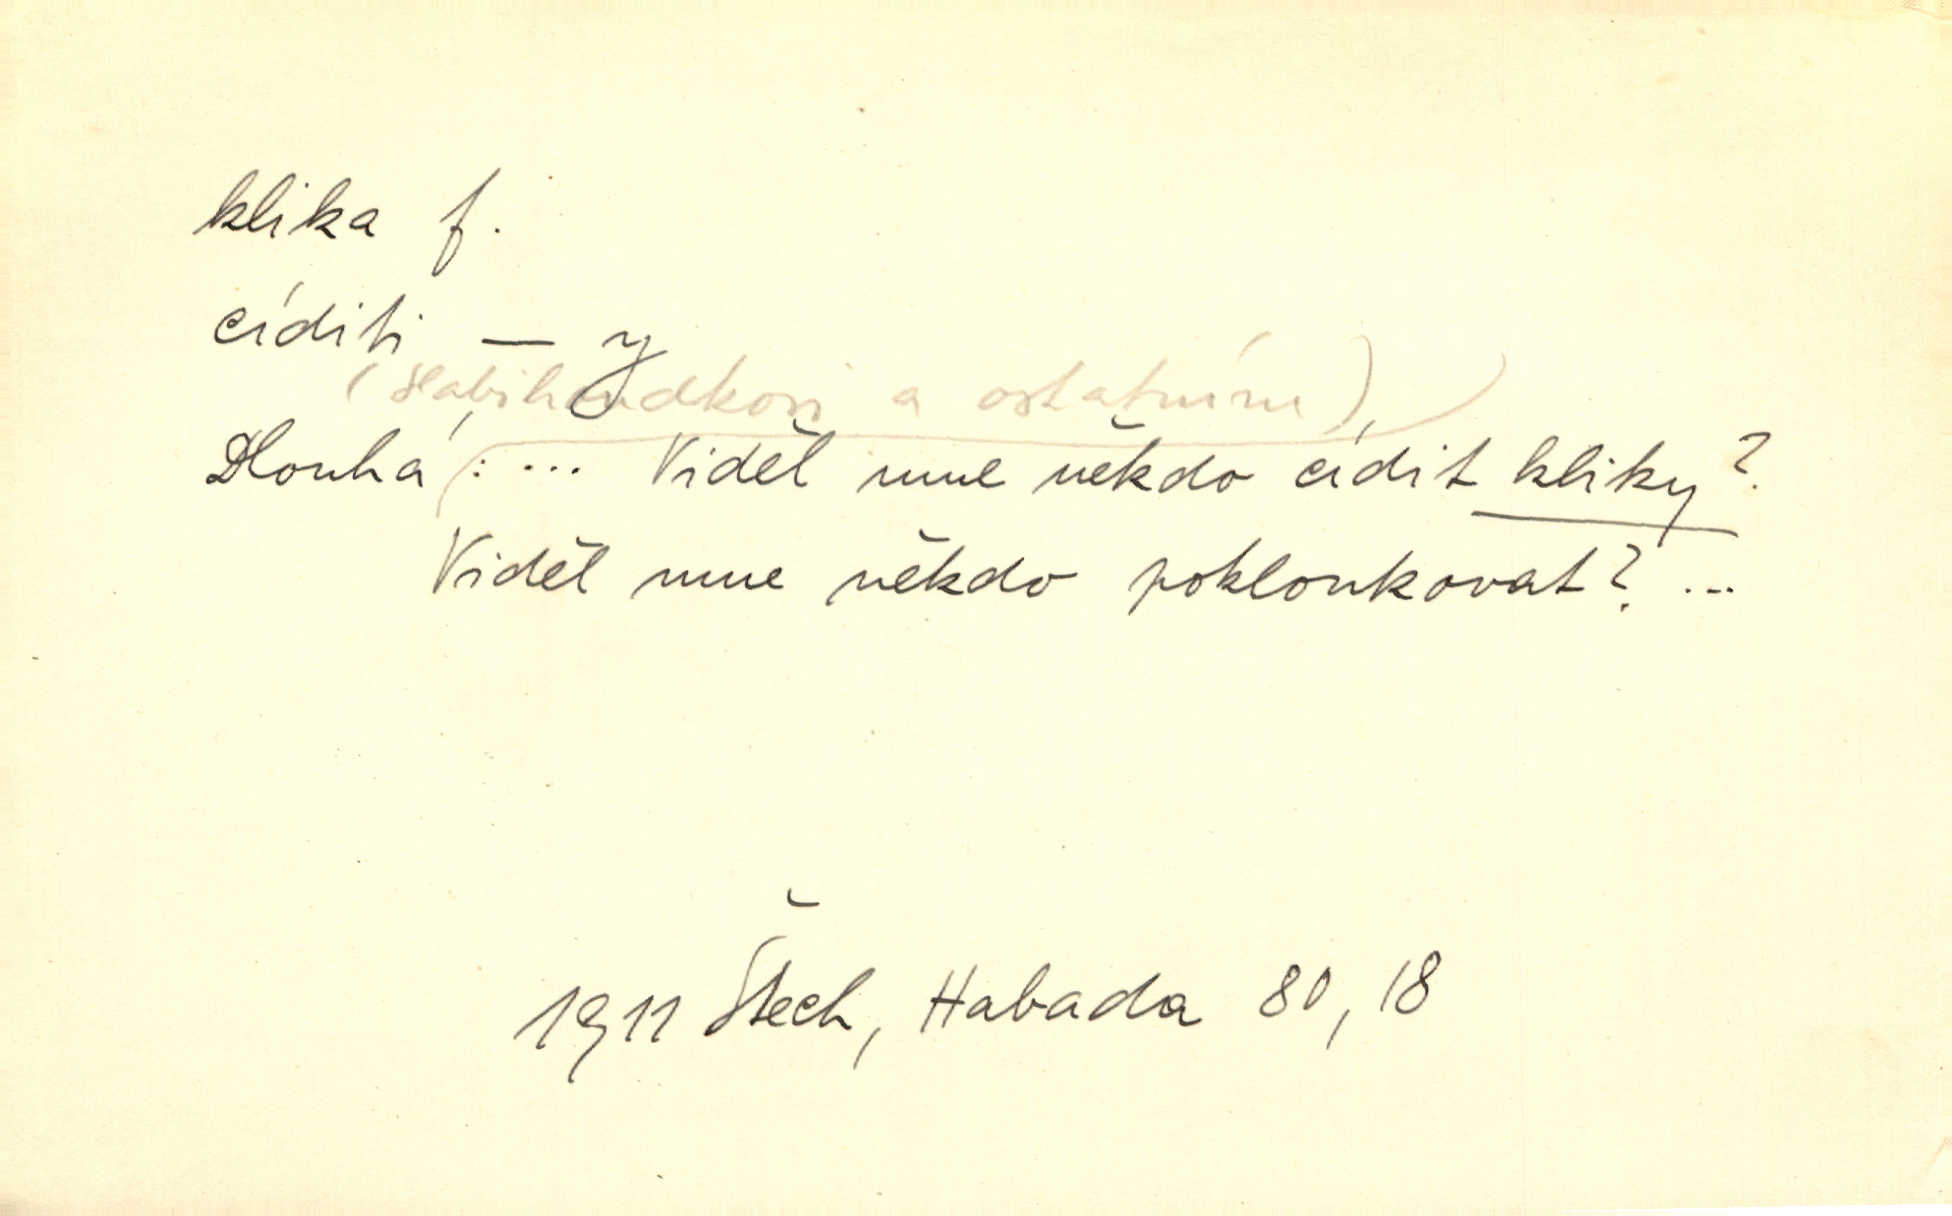 klika f.
cíditi — y
(Slabihoudkovi a ostatním)
Dlouhá: ... Viděl mne někdo cídit kliky?
Viděl mne někdo poklonkovat? ...
1911 Štech, Habada 80, 18